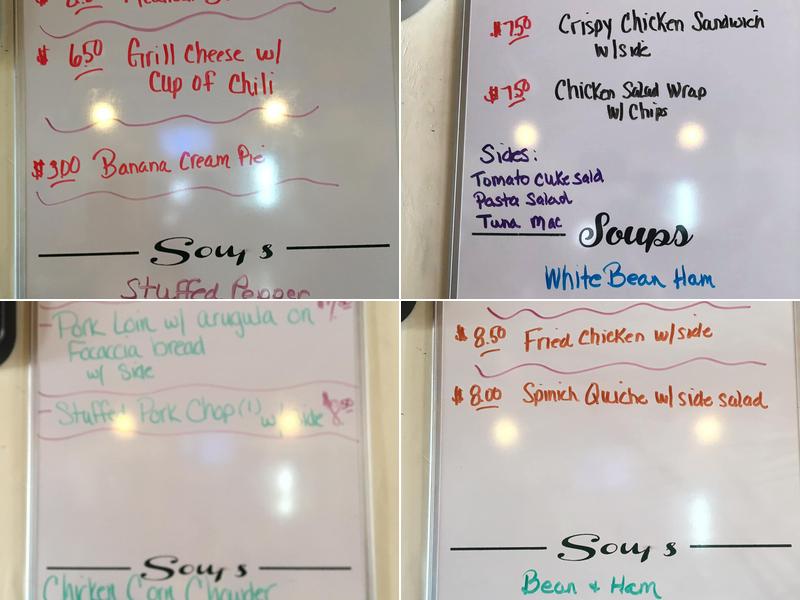 $ 6.50 Grill Cheese w/
Cup of Chili
$3.00 Banana Cream Pie
Sou s
Stuffed Pepper
$7.50 Crispy Chicken Sandwich
w/side
$7.50 Chicken Salad Wrap
w/ Chips
Sides:
Tomato cuke sald
Pasta Salad
Tuna Mac
Soups
White Bean Ham
- Pork Loin w/ arugula on
Focaccia bread
w/ Side
- Stuffed Pork Chop (1) w/ side $8.50
Sou s
Chicken Corn Chowder
$ 8.50 Fried Chicken w/side
$ 8.00 Spinich Quiche w/ side salad
Sou s
Bean + Ham